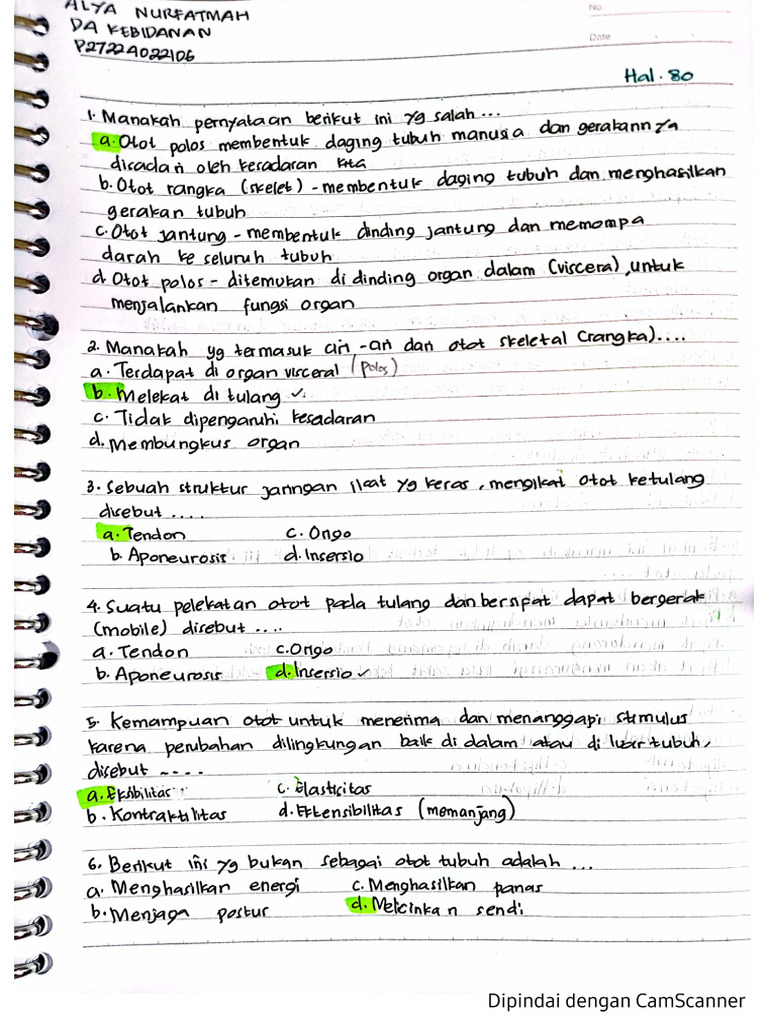 ALYA NURFATMAH
DA KEBIDANAN
P27224022106
No.
Date
Hal. 80
1. Manakah pernyataan berikut ini yg salah...
a. Otot polos membentuk daging tubuh manusia dan gerakannya
disadari oleh kesadaran kita
b. Otot rangka (skelet) - membentuk daging tubuh dan menghasilkan
gerakan tubuh
c. Otot jantung - membentuk dinding jantung dan memompa
darah ke seluruh tubuh
d. Otot polos - ditemukan di dinding organ dalam (viscera), untuk
menjalankan fungsi organ
2. Manakah yg termasuk ciri-ciri dari otot skeletal (rangka)....
a. Terdapat di organ visceral (polos)
b. Melekat di tulang ✓
c. Tidak dipengaruhi kesadaran
d. Membungkus organ
3. Sebuah struktur jaringan ikat yg keras, mengikat otot ketulang
disebut ....
a. Tendon c. Origo
b. Aponeurosis d. Insersio
4. Suatu pelekatan otot pada tulang dan bersipat dapat bergerak
(mobile) disebut ....
a. Tendon c. Origo
b. Aponeurosis d. Insersio ✓
5. Kemampuan otot untuk menerima dan menanggapi stimulus
karena perubahan dilingkungan baik di dalam atau di luar tubuh,
disebut ....
a. Eksibilitas c. Elasticitas
b. Kontraktilitas d. Ektensibilitas (memanjang)
6. Berikut ini yg bukan sebagai otot tubuh adalah ...
a. Menghasilkan energi c. Menghasilkan panas
b. Menjaga postur d. Melicinkan sendi
Dipindai dengan CamScanner